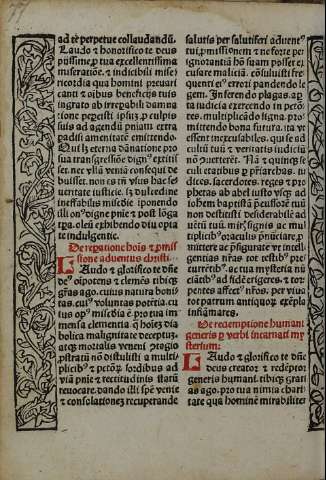 ad te perpetue collaudandũ.
Laudo & honorifico te deus
piissime, p tua excellentissima
miseratiõe, & indicibili miseri
cordia qua homini preuari
canti & oibus beneficijs tuis
ingrato ab irrepabili damna
tione pepcisti ipsuz, p culpis
suis ad agendũ pniam extra
padisi amenitatẽ emittendo.
Qui lz eterna dãnatione pro
sua transgressiõe dign' extitis
set, nec vllã venia consequi de
buisset, non eni in vlius hac fas
veritate iusticie, lz dulcedine
ineffabilis miscdie iponendo
illi on' digne pnie & post lõga
tpa, oleũ exhibendo diu opta
te indulgentie.
De repatione hois & pmis
sione aduentus christi.
Laudo & glorifico te deus
oipotens & clemẽs tibiqz
gras ago, cuius natura boni
tas, cui' voluntas potẽtia, cui
ius op' miscdia e pro tua im
mensa clementia q hoiez dia
bolica malignitate deceptuz,
atqz mortalis veneni ptagio
pstratũ nõ distulisti a multi
plicib' & petõrz sordibus ad
viã pnie & rectitudinis statũ
reuocare, dando illi spẽ venie
& consolationez recuperande
salutis per salutiferi aduent'
tui pmissionem & ne forte per
ignorantiã hõ suam posset ex
cusare maliciã, cõsuluisti fre
quenti ei' errori pandendo le
gem. Inferendo plagas, cer
ta iudicia exercendo in petõ
res, multiplicãdo signa, pro
mittendo bona futura, ita vt
essent inexcusabiles, qui se ad
cultũ tui & veritatis iudicia
nõ querterẽt. Nã & quinqz se
culi etatibus p pfiarchas, iu
dices, sacerdotes, reges & pro
phetas ab abel iusto vsqz ad
iohem baptistã peruorẽ tuũ
non destitisti desiderabilẽ ad
uentũ tuũ mir', signis ac mul
plicib' oraculis pnũciare, p
mittere ac pfigurate vt intelli
gentias nras tot testib' pre
currẽtib', ac tua mysteria nũ
ciãtib' ad fidẽ erigeres, & tor
pentes affect' nros, per viua
tot patrum antiquorz exẽpla
inflãmares.
De redemptione humani
generis p verbi incarnati my
sterium:
Laudo & glorifico te dñe
deus creator & redẽptor
generis humani, tibiqz grati
as ago, pro tua nimia chari
tate qua hominẽ mirabiliter